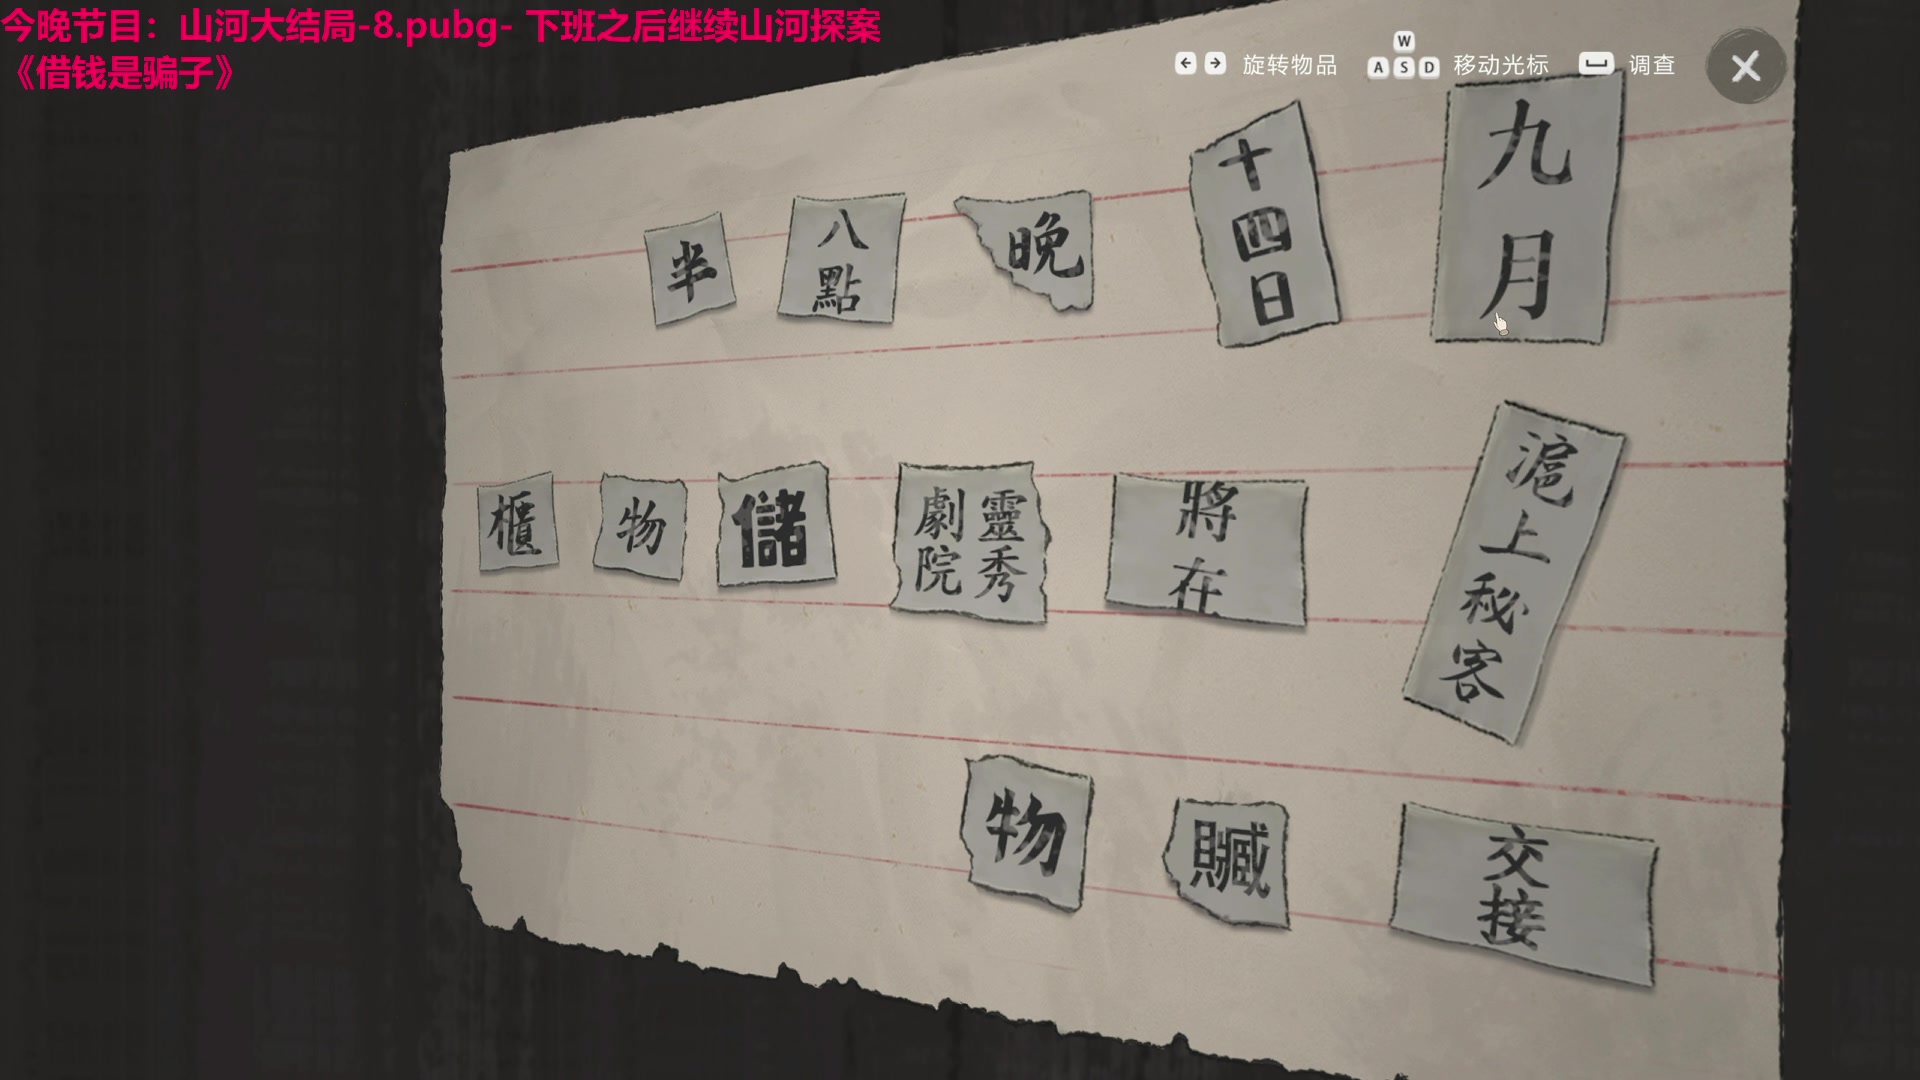 今晚节目：山河大结局-8.pubg- 下班之后继续山河探案
《借钱是骗子》
旋转物品
W
A S D
移动光标
调查
九月
十四日
晚
八點
半
滬上秘客
將在
靈秀
劇院
儲
物
櫃
交接
贓
物